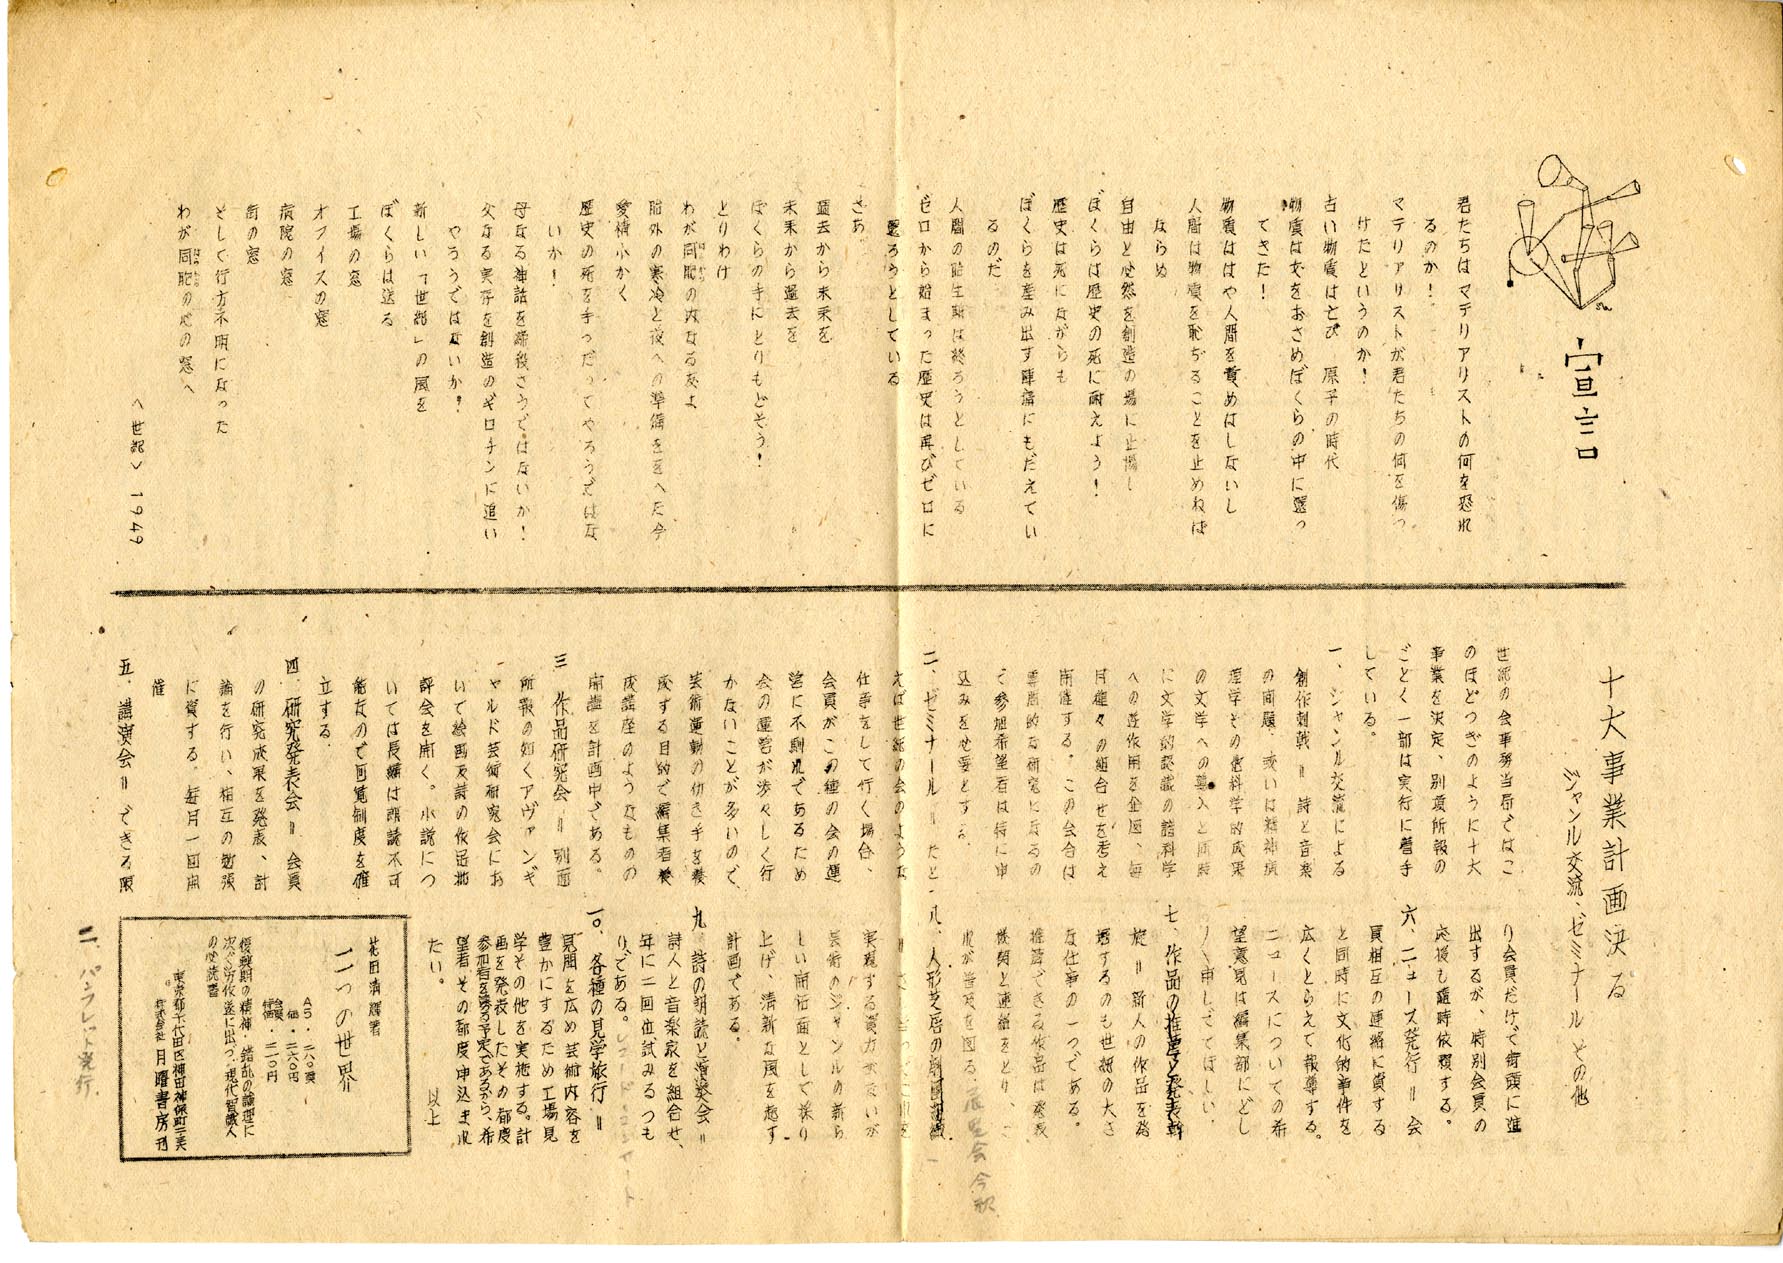 宣言
君たちはマテリアリストの何を恐れ
るのか！
マテリアリストが君たちの何を傷つ
けたというのか！
古い物質はとび　原子の時代
物質は女をおさめぼくらの中に還っ
てきた！
物質ははや人間を責めはしないし
人間は物質を恥ぢることを止めねば
ならぬ
自由と必然を創造の場に止揚し
ぼくらは歴史の死に耐えよう！
歴史は死にながらも
ぼくらを産み出す陣痛にもだえてい
るのだ
人間の胎生期は終ろうとしている
ゼロから始まった歴史は再びゼロに
戻ろうとしている
さあ
過去から未来を
未来から過去を
ぼくらの手にとりもどそう！
とりわけ
わが同胞の内なる友よ
胎外の寒冷と夜への準備ををへた今
愛情ふかく
歴史の死を手つだってやろうではな
いか！
母なる神話を締殺そうではないか！
父なる実存を創造のギロチンに追い
やろうではないか？
新しい「世紀」の風を
ぼくらは送る
工場の窓
オフイスの窓
病院の窓
街の窓
そして行方不明になった
わが同胞の心の窓へ
〈世紀〉 1949
十大事業計画決る
ジャンル交流、ゼミナールその他
世紀の会事務当局ではこ
のほどつぎのように十大
事業を決定、別項所報の
ごとく一部は実行に着手
している。
一、ジャンル交流による
創作刺戟＝詩と音楽
の問題、或いは精神病
理学その他科学的成果
の文学への導入と同時
に文学的認識の諸科学
への逆作用を企図、毎
月種々の組合せを考え
開催する。この会合は
専門的な研究になるの
で参加希望者は特に申
込みを必要とする。
二、ゼミナール＝たと
えば世紀の会のような
仕事をして行く場合、
会員がこの種の会の運
営に不馴れであるため
会の運営が渉々しく行
かないことが多いので、
芸術運動の働き手を養
成する目的で編集者養
成講座のようなものの
開講を計画中である。
三　作品研究会＝別面
所報の如くアヴァンギ
ャルド芸術研究会にお
いて絵画及詩の作品批
評会を開く。小説につ
いては長編は朗読不可
能なので回覧制度を確
立する．
四、研究発表会＝会員
の研究成果を発表、討
論を行い、相互の勉強
に資する。毎月一回開
催
五．講演会＝できる限
り会員だけで街頭に進
出するが、特別会員の
応援も随時依頼する。
六、ニュース発行＝会
員相互の連絡に資する
と同時に文化的事件を
広くとらえて報導する。
ニュースについての希
望意見は編集部にどし
〱申しでてほしい。
七、作品の推薦と発表斡
旋＝新人の作品を発
掘するのも世紀の大き
な仕事の一つである。
推薦できる作品は発表
機関と連絡をとり、こ
れが普及を図る．展覧会今秋
八、人形芝居の
実現する実力はないが
芸術のジャンルの新ら
しい開拓面として採り
上げ、清新な風を起す
計画である。
九．詩の朗読と演奏会＝
詩人と音楽家を組合せ、
年に二回位試みるつも
りである。レコード・コンサート
一〇．各種の見学旅行＝
見聞を広め芸術内容を
豊かにするため工場見
学その他を実施する。計
画を発表したその都度
参加者を募る予定であるから、希
望者はその都度申込まれ
たい。　　以上
花田清輝著
二つの世界
A5・二八〇頁
価・二六〇円
会員特価・二一〇円
復興期の精神・錯乱の論理に
次ぐ力作遂に出づ。現代智識人
の必読書。
東京都千代田区神田神保町三ノ三
株式会社　月曜書房刊
二．パンフレット発行．